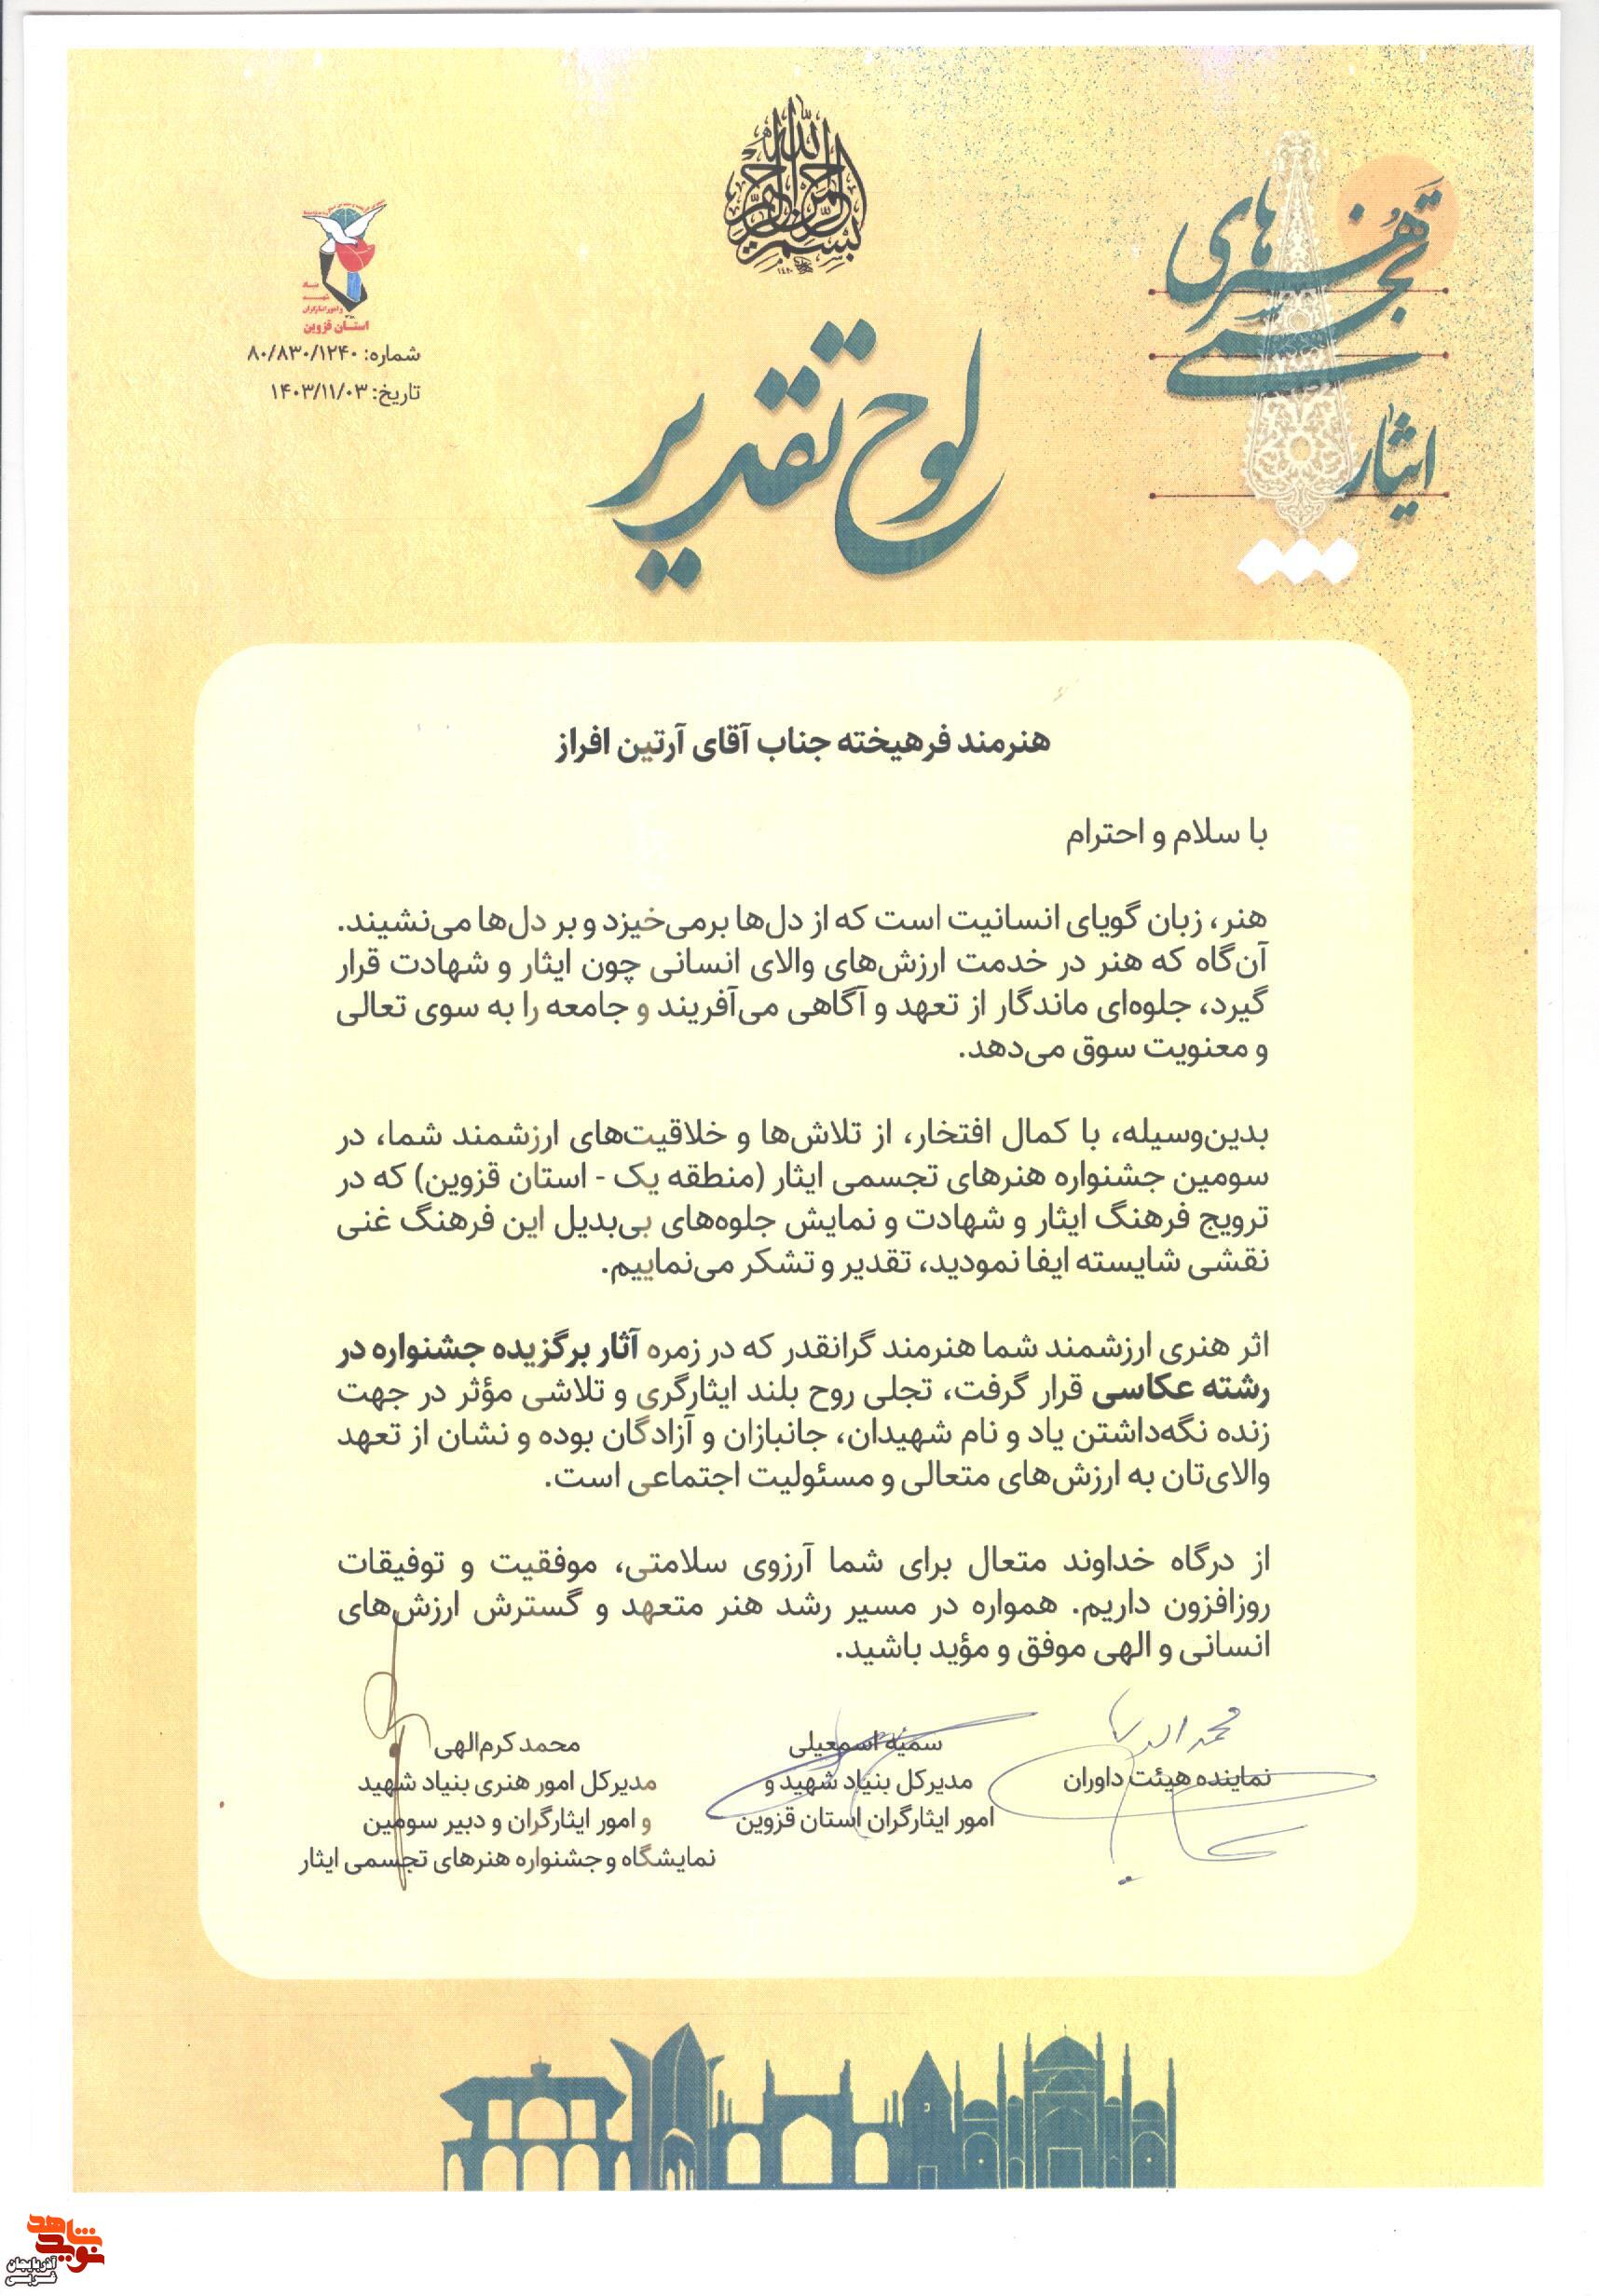 بسم الله الرحمن الرحیم
هنرهای
تجسمی
ایثار
استان قزوین
شماره: ۸۰/۸۳۰/۱۲۴۰
تاریخ: ۱۴۰۳/۱۱/۰۳
لوح تقدیر
هنرمند فرهیخته جناب آقای آرتین افراز
با سلام و احترام
هنر، زبان گویای انسانیت است که از دل‌ها برمی‌خیزد و بر دل‌ها می‌نشیند.
آن‌گاه که هنر در خدمت ارزش‌های والای انسانی چون ایثار و شهادت قرار
گیرد، جلوه‌ای ماندگار از تعهد و آگاهی می‌آفریند و جامعه را به سوی تعالی
و معنویت سوق می‌دهد.
بدین‌وسیله، با کمال افتخار، از تلاش‌ها و خلاقیت‌های ارزشمند شما، در
سومین جشنواره هنرهای تجسمی ایثار (منطقه یک - استان قزوین) که در
ترویج فرهنگ ایثار و شهادت و نمایش جلوه‌های بی‌بدیل این فرهنگ غنی
نقشی شایسته ایفا نمودید، تقدیر و تشکر می‌نماییم.
اثر هنری ارزشمند شما هنرمند گرانقدر که در زمره آثار برگزیده جشنواره در
رشته عکاسی قرار گرفت، تجلی روح بلند ایثارگری و تلاشی مؤثر در جهت
زنده نگه‌داشتن یاد و نام شهیدان، جانبازان و آزادگان بوده و نشان از تعهد
والای‌تان به ارزش‌های متعالی و مسئولیت اجتماعی است.
از درگاه خداوند متعال برای شما آرزوی سلامتی، موفقیت و توفیقات
روزافزون داریم. همواره در مسیر رشد هنر متعهد و گسترش ارزش‌های
انسانی و الهی موفق و مؤید باشید.
نماینده هیئت داوران
سمیه اسمعیلی
مدیرکل بنیاد شهید و
امور ایثارگران استان قزوین
محمد کرم‌الهی
مدیرکل امور هنری بنیاد شهید
و امور ایثارگران و دبیر سومین
نمایشگاه و جشنواره هنرهای تجسمی ایثار
نوید شاهد
آذربایجان
غربی